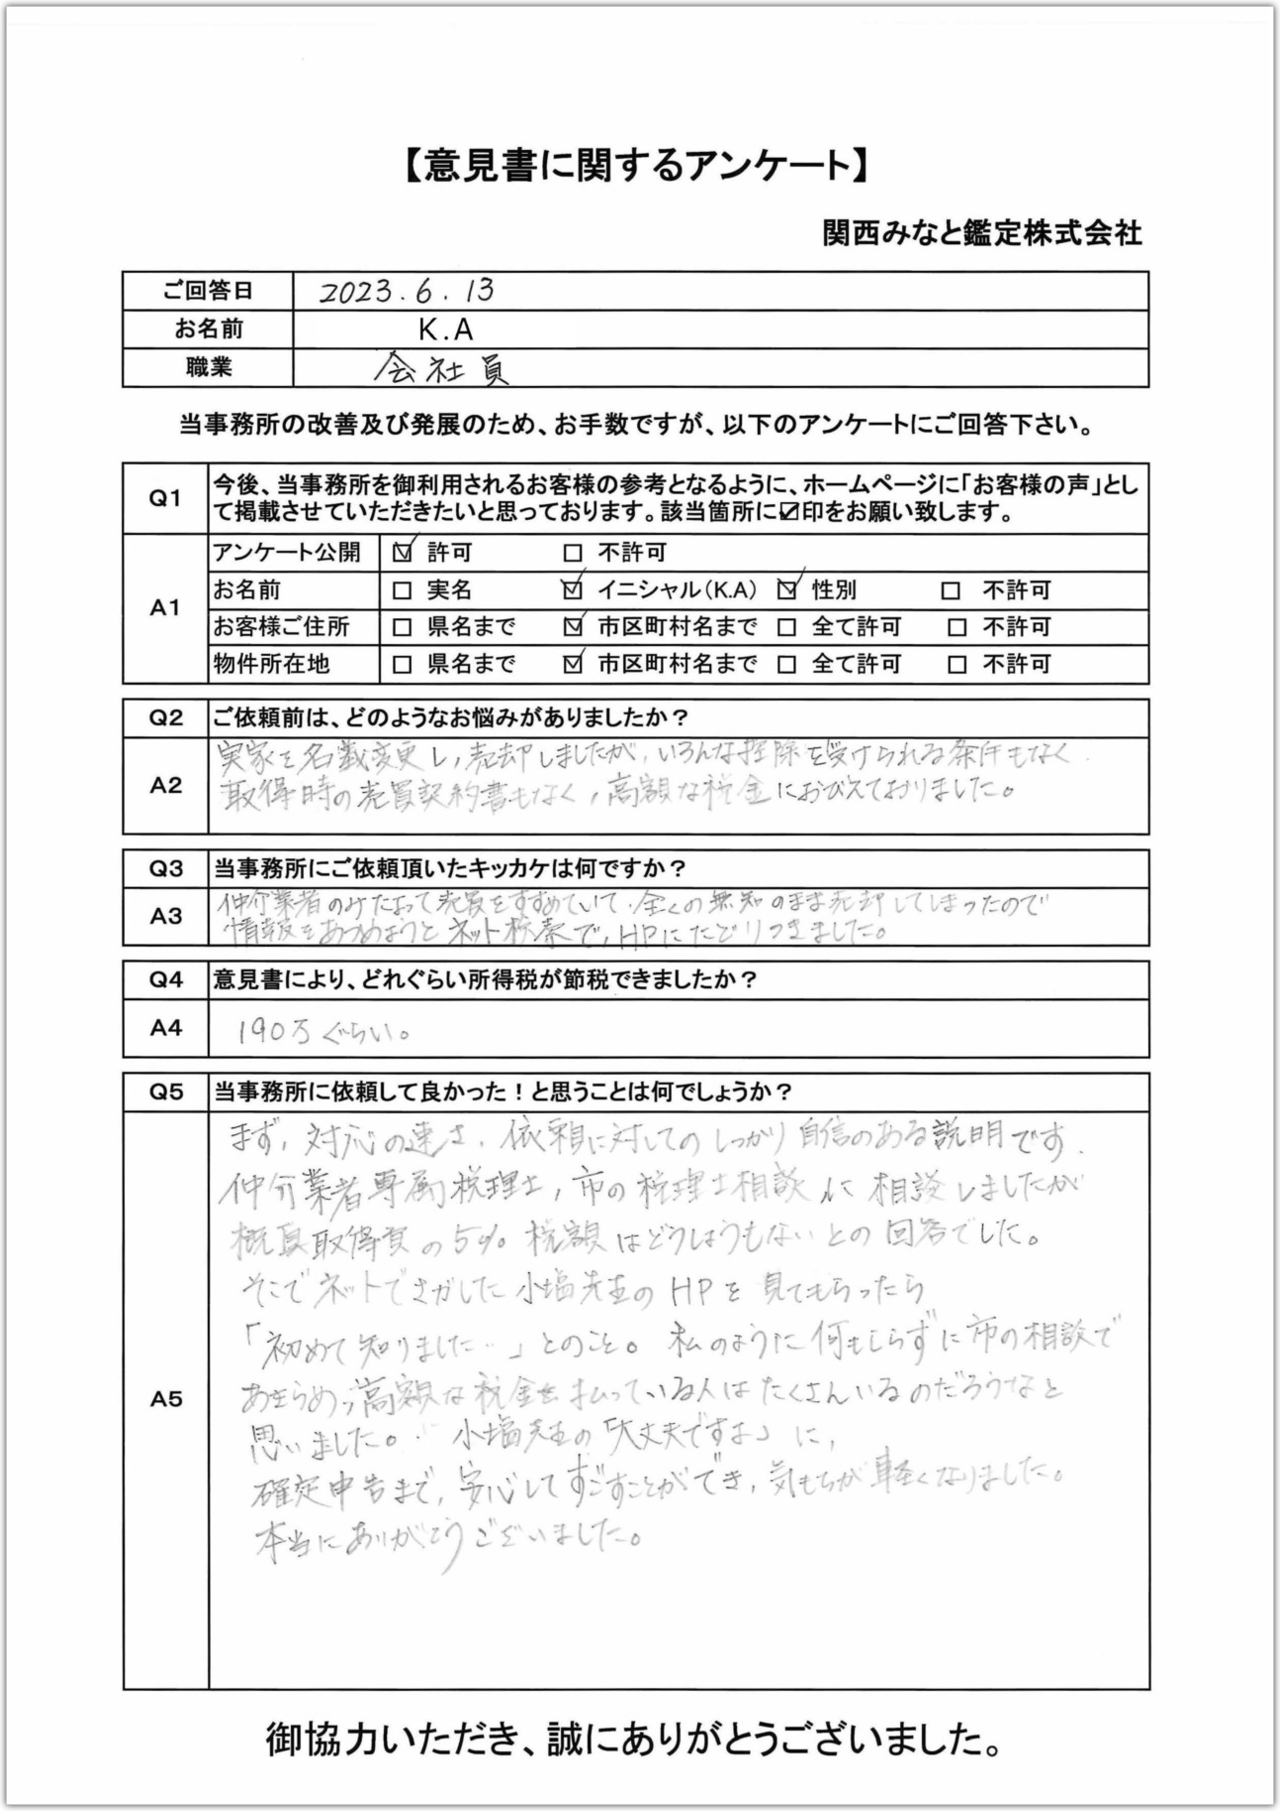 【意見書に関するアンケート】
関西みなと鑑定株式会社
ご回答日 2023.6.13
お名前 K.A
職業 会社員
当事務所の改善及び発展のため、お手数ですが、以下のアンケートにご回答下さい。
Q1 今後、当事務所を御利用されるお客様の参考となるように、ホームページに「お客様の声」とし
て掲載させていただきたいと思っております。該当箇所に☑印をお願い致します。
A1
アンケート公開 ☑ 許可 □ 不許可
お名前 □ 実名 ☑ イニシャル(K.A) ☑ 性別 □ 不許可
お客様ご住所 □ 県名まで ☑ 市区町村名まで □ 全て許可 □ 不許可
物件所在地 □ 県名まで ☑ 市区町村名まで □ 全て許可 □ 不許可
Q2 ご依頼前は、どのようなお悩みがありましたか?
A2
実家を名義変更し、売却しましたが、いろんな控除を受けられる条件もなく
取得時の売買契約書もなく、高額な税金におびえておりました。
Q3 当事務所にご依頼頂いたキッカケは何ですか?
A3
仲介業者のみたよって売買をすすめていて、全くの無知のまま売却してしまったので
情報をあつめようとネット検索で、HPにたどりつきました。
Q4 意見書により、どれぐらい所得税が節税できましたか?
A4 190万ぐらい。
Q5 当事務所に依頼して良かった!と思うことは何でしょうか?
A5
まず、対応の速さ、依頼に対してのしっかり自信のある説明です.
仲介業者専属税理士、市の税理士相談に相談しましたが
概算取得費の5% 税額はどうしようもないとの回答でした。
そこでネットでさがした小塩先生のHPを見てもらったら
「初めて知りました…」とのこと。私のように何もしらずに市の相談で
あきらめ、高額な税金を払っている人はたくさんいるのだろうなと
思いました。小塩先生の「大丈夫ですよ」に、
確定申告まで、安心してすごすことができ、気もちが軽くなりました。
本当にありがとうございました。
御協力いただき、誠にありがとうございました。